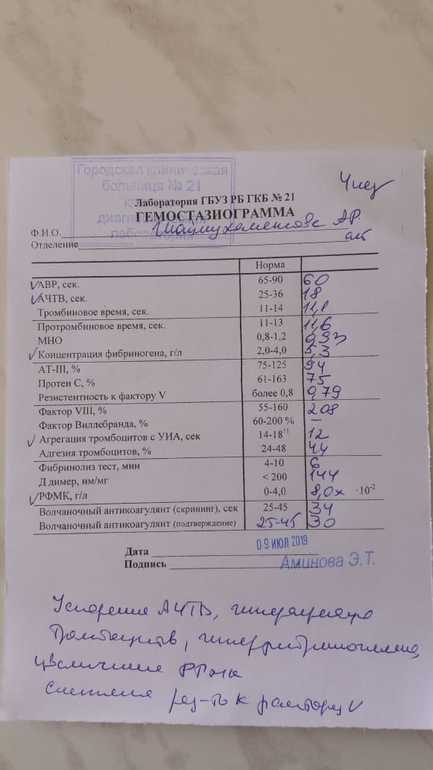 Городская клиническая
больница № 21
Лаборатория ГБУЗ РБ ГКБ № 21
ГЕМОСТАЗИОГРАММА
Ф.И.О. А.Р.
Отделение
Норма
АВР, сек. 65-90 60
АЧТВ, сек. 25-36 18
Тромбиновое время, сек. 11-14 11,1
Протромбиновое время, сек. 11-13 11,6
МНО 0,8-1,2 0,93
Концентрация фибриногена, г/л 2,0-4,0 5,3
АТ-III, % 75-125 94
Протеин С, % 61-163 75
Резистентность к фактору V более 0,8 0,79
Фактор VIII, % 55-160 208
Фактор Виллебранда, % 60-200 % —
Агрегация тромбоцитов с УИА, сек 14-18" 12
Адгезия тромбоцитов, % 24-48 44
Фибринолиз тест, мин 4-10 6
Д димер, нм/мг < 200 144
РФМК, г/л 0-4,0 8,0х ·10⁻²
Волчаночный антикоагулянт (скрининг), сек 25-45 34
Волчаночный антикоагулянт (подтверждение) 25-45 30
Дата 09 ИЮЛ 2019
Подпись Аминова Э.Т.
Ускорение АЧТВ, гиперагрегация
тромбоцитов, гиперфибриногенемия,
увеличение РФМК
снижение рез-ть к фактору V